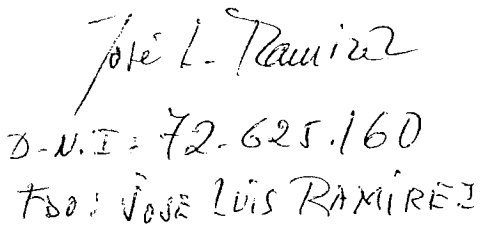 José L. Ramirez
D.N.I: 72.625.160
FDO: JOSE LUIS RAMIREZ